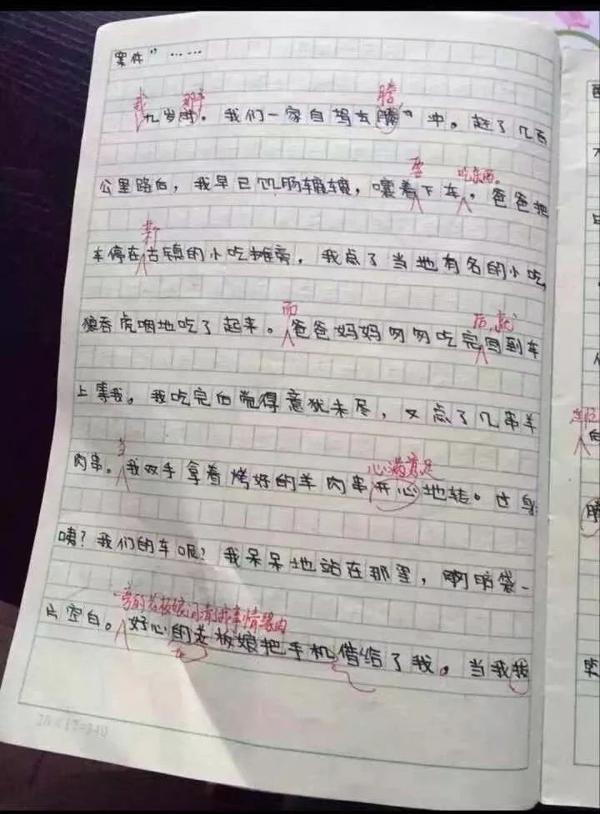 案件”……
我 那年 腾
九岁时。我们一家自驾去腾冲。赶了几百
要 吃东西
公里路后，我早已饥肠辘辘，嚷着下车，爸爸把
车停在古镇的小吃摊旁，我点了当地有名的小吃，
而 后，就
狼吞虎咽地吃了起来。爸爸妈妈匆匆吃完回到车
上等我。我吃完后觉得意犹未尽，又点了几串羊
当 心满意足
肉串。我双手拿着烤好的羊肉串开心地转。过身
咦？我们的车呢？我呆呆地站在那里，脑袋一
旁的老板娘问清我事情缘由
片空白。好心的老板娘把手机借给了我。当我我
20×17=340